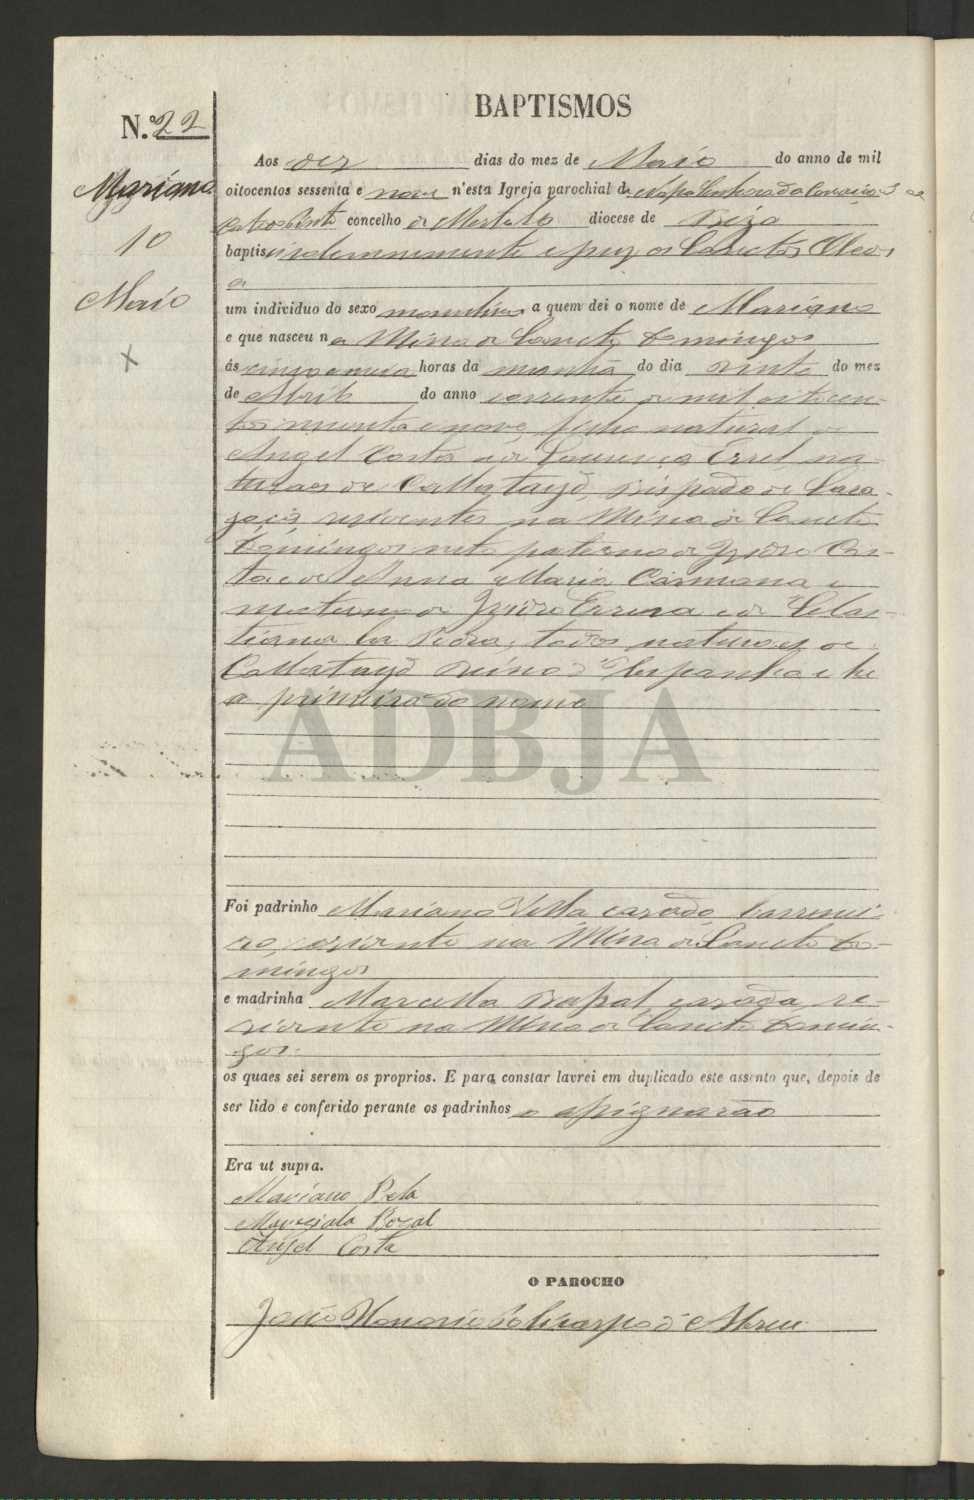 BAPTISMOS
N.º 22
Mariano
10
Maio
Aos dez dias do mez de Maio do anno de mil
oitocentos sessenta e nove n'esta Igreja parochial de Nossa Senhora da Conceição
concelho de Mertola diocese de Beja
baptisei solemnemente e puz os Sanctos Oleos
a
um individuo do sexo masculino a quem dei o nome de Mariano
e que nasceu na Mina de Sancto Domingos
ás cinco e meia horas da manhã do dia vinte do mez
de Abril do anno corrente de mil oitocen-
tos sessenta e nove, filho natural de
Angel Costa e de Errel na-
turaes de Callatayd, Bispado de Sara-
goça, residentes na Mina de Sancto
Domingos neto paterno de Izidro Cos-
ta e de Anna Maria Carmana e
materno de Izidro Errera e de Sebas-
tiana la Pedra, todos naturaes de
Callatayd Reino d'Hespanha e he
o primeiro do nome
ADBJA
Foi padrinho Mariano Villa casado barrenei-
ro, residente na Mina de Sancto Do-
mingos
e madrinha Marcella casada re-
sidente na Mina de Sancto Domin-
gos.
os quaes sei serem os proprios. E para constar lavrei em duplicado este assento que, depois de
ser lido e conferido perante os padrinhos o assignarão
Era ut supra.
Mariano
Angel Costa
O PAROCHO
João Honorio Policarpo d'Abreu